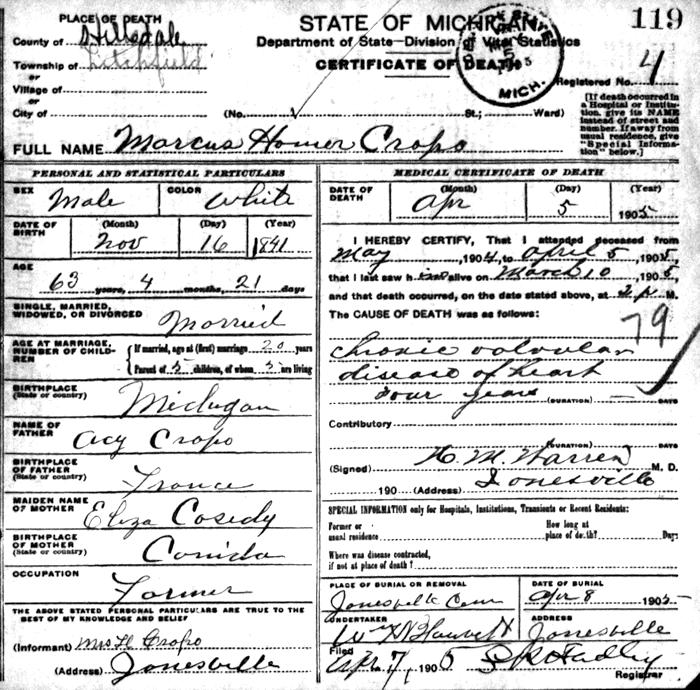 PLACE OF DEATH
County of Hillsdale
Township of Litchfield
or
Village of
or
City of
STATE OF MICHIGAN
Department of State-Division of Vital Statistics
CERTIFICATE OF DEATH
MICH.
119
Registered No. 4
(No. St.; Ward)
[If death occurred in a Hospital or Institution, give its NAME instead of street and number. If away from usual residence, give "Special Information" below.]
FULL NAME Marcus Homer Cropo
PERSONAL AND STATISTICAL PARTICULARS
SEX Male COLOR White
DATE OF BIRTH (Month) Nov (Day) 16 (Year) 1841
AGE
63 years, 4 months, 21 days
SINGLE, MARRIED, WIDOWED, OR DIVORCED Married
AGE AT MARRIAGE, NUMBER OF CHILDREN
If married, age at (first) marriage 20 years
Parent of 5 children, of whom 5 are living
BIRTHPLACE (State or country) Michigan
NAME OF FATHER Acy Cropo
BIRTHPLACE OF FATHER (State or country) France
MAIDEN NAME OF MOTHER Eliza Cosedy
BIRTHPLACE OF MOTHER (State or country) Conida
OCCUPATION Former
THE ABOVE STATED PERSONAL PARTICULARS ARE TRUE TO THE BEST OF MY KNOWLEDGE AND BELIEF
(Informant) Mrs H Cropo
(Address) Jonesville
MEDICAL CERTIFICATE OF DEATH
DATE OF DEATH (Month) Apr (Day) 5 (Year) 1905
I HEREBY CERTIFY, That I attended deceased from
May, 1904, to April 5, 1905,
that I last saw him alive on March 10 1905,
and that death occurred, on the date stated above, at 2 p M.
The CAUSE OF DEATH was as follows:
79
chronic valvular
disease of heart
Four years (DURATION) DAYS
Contributory
(DURATION) DAYS
(Signed) H. M. Warren M. D.
190 (Address) Jonesville
SPECIAL INFORMATION only for Hospitals, Institutions, Transients or Recent Residents:
Former or usual residence How long at place of death? Days
Where was disease contracted, if not at place of death?
PLACE OF BURIAL OR REMOVAL Jonesville Cem
DATE OF BURIAL Apr 8 1905
UNDERTAKER
ADDRESS Jonesville
Filed Apr 7, 1905 Hadley
Registrar